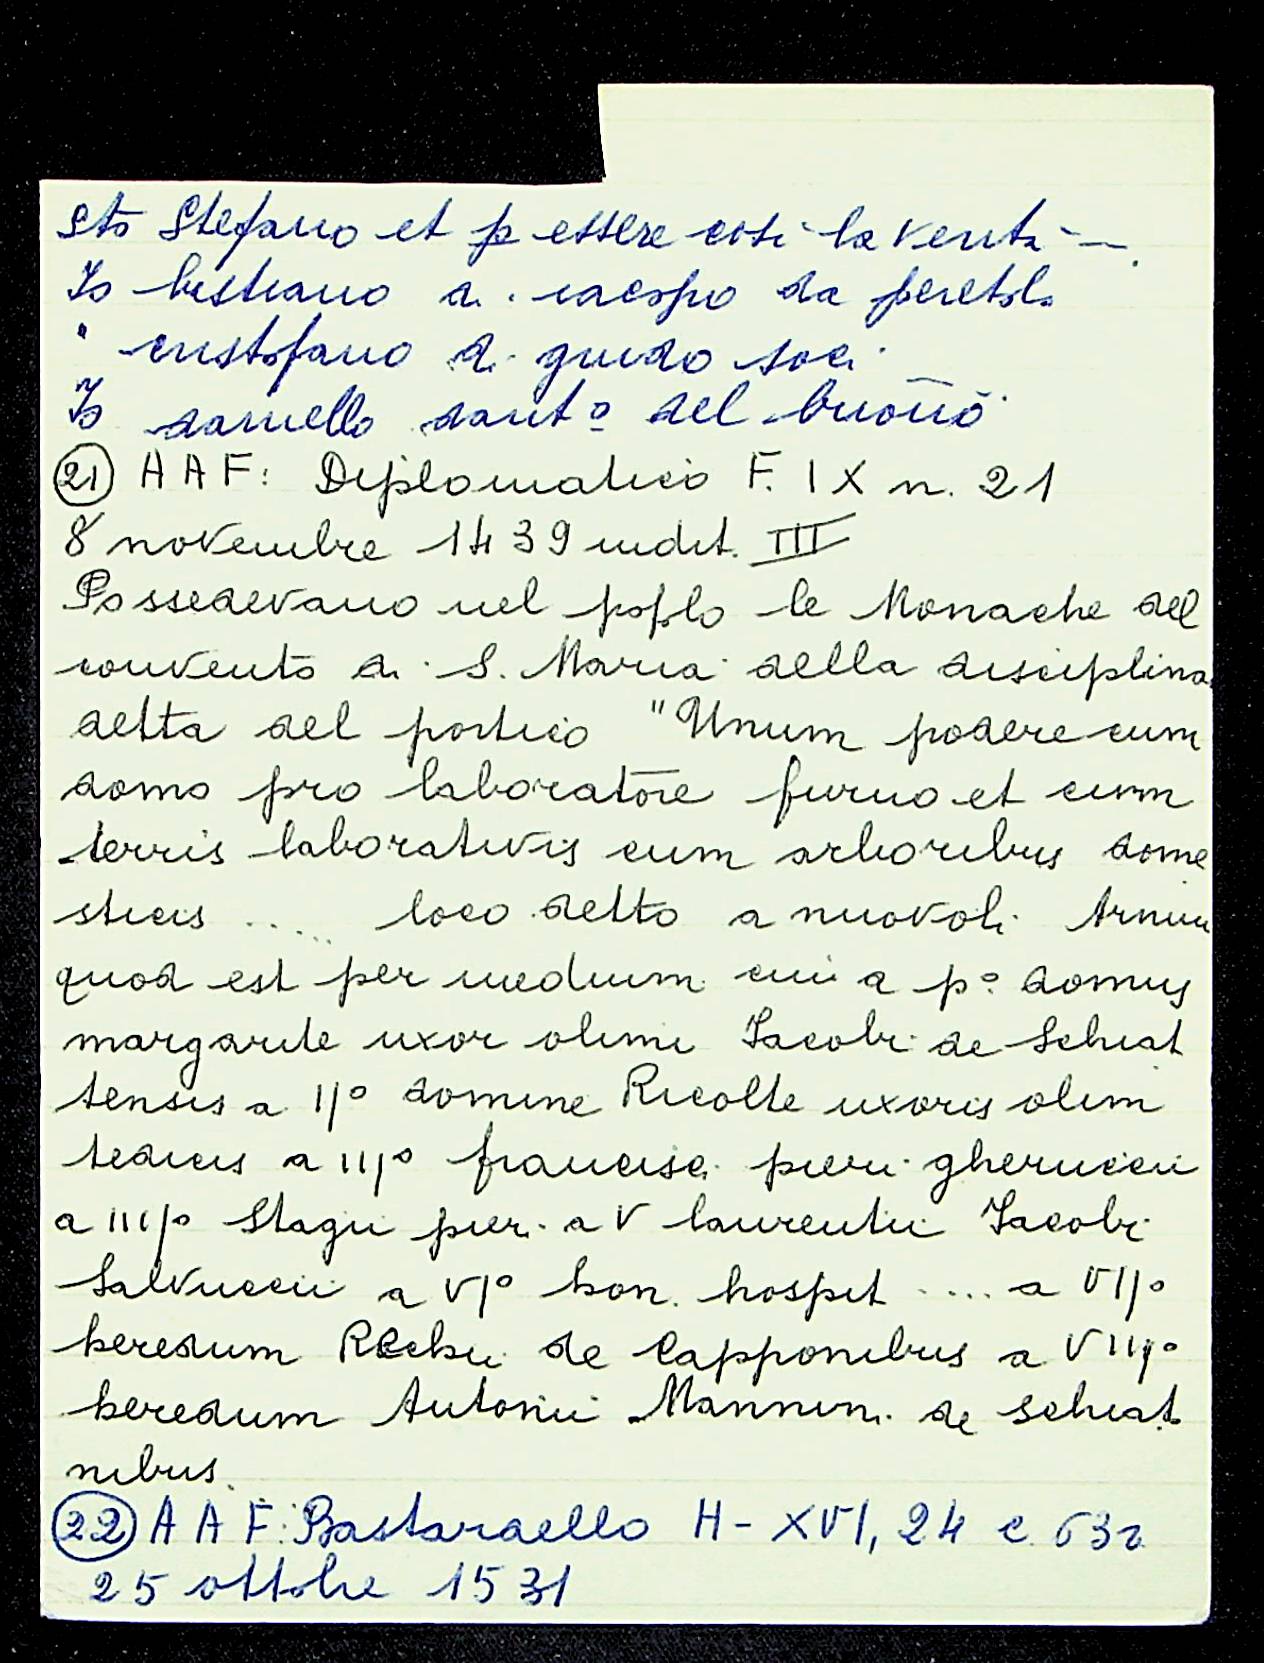 sto Stefano et p essere così la verità —.
Io bistiano di iacopo da peretola
" cristofano di guido soci
Io daniello dant° del buono
(21) A A F: Diplomatico F. IX n. 21
8 novembre 1439 indit. III
Possedevano nel popolo le Monache del
convento di S. Maria della disciplina
detta del portico "Unum podere cum
domo pro laboratore furno et cum
terris laborativis cum arboribus dome
sticis ..... loco detto a nuovoli
quod est per medium cui a p° domus
margarite uxor olim Iacobi de Schiat
tensis a II° domine Ricolte uxoris olim
tedicis a III° francisci pieri gheruccii
a IIII° Stagii pieri a V laurentii Iacobi
Salvuccii a VI° bon. hospit .... a VII°
heredum de Capponibus a VIII°
heredum Antonii Mannini de Schiat
nibus.
(22) A A F: Bastardello H - XVI, 24 c. 63r
25 ottobre 1531